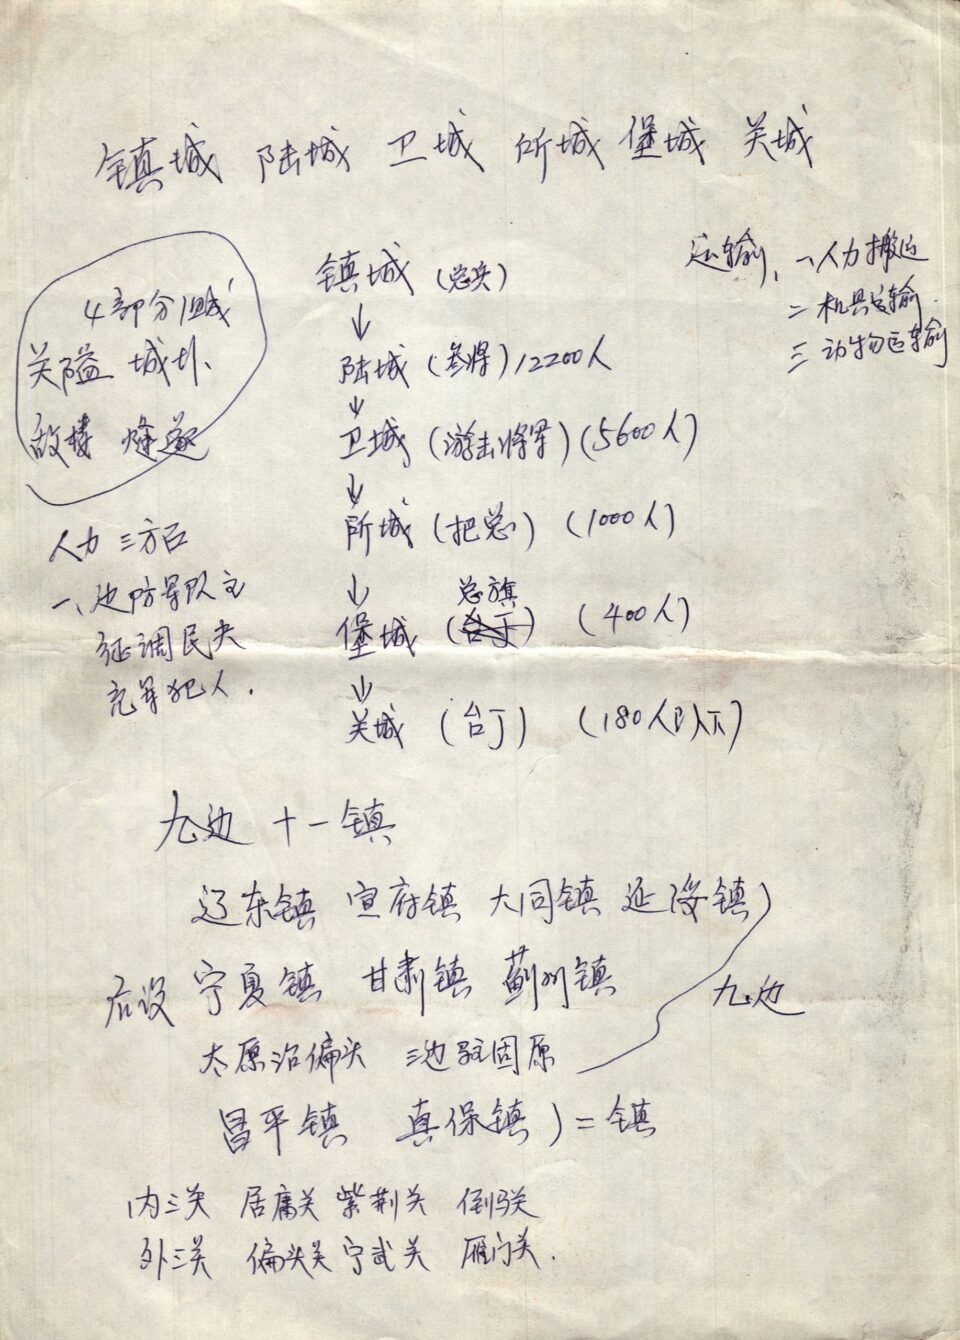 镇城 陆城 卫城 所城 堡城 关城
4部分组成
关隘 城圤、
敌楼 烽燧
人力 三方面
一、边防军队主
征调民夫
充军犯人.
镇城 (总兵)
↓
陆城 (参将) 12200人
↓
卫城 (游击将军) (5600人)
↓
所城 (把总) (1000人)
↓
总旗
堡城 (台丁) (400人)
↓
关城 (台丁) (180人以下)
运输、一人力搬运
二 机具运输.
三 动物运输
九边 十一镇
辽东镇 宣府镇 大同镇 延绥镇)
后设 宁夏镇 甘肃镇 蓟州镇 九边
太原治偏头 三边驻固原
昌平镇 真保镇) = 镇
内三关 居庸关 紫荆关 倒马关
外三关 偏头关 宁武关 雁门关.